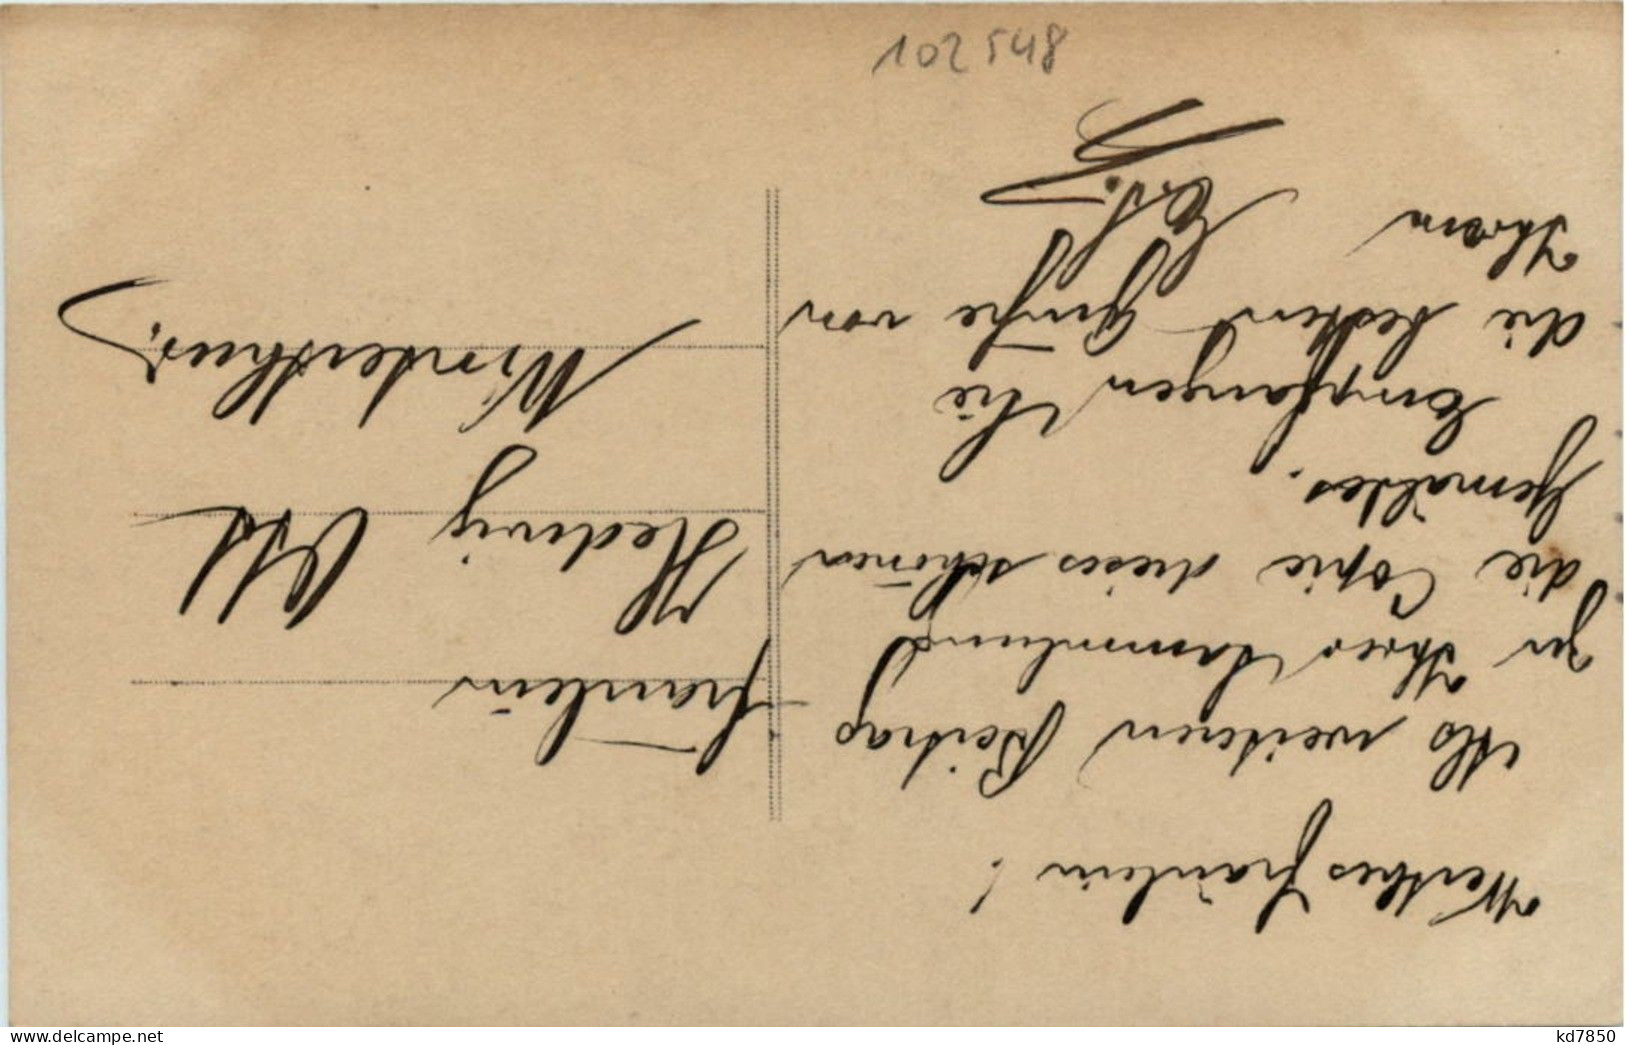 Werthes Fräulein!
Als weiteren Beitrag
zu Ihrer Sammlung
die Copie dieses schönen
Gemäldes.
Empfangen Sie
die besten Grüße von
Ihrem
Fräulein
Hedwig Ott
Winterthur.
102548
www.delcampe.net
kd7850